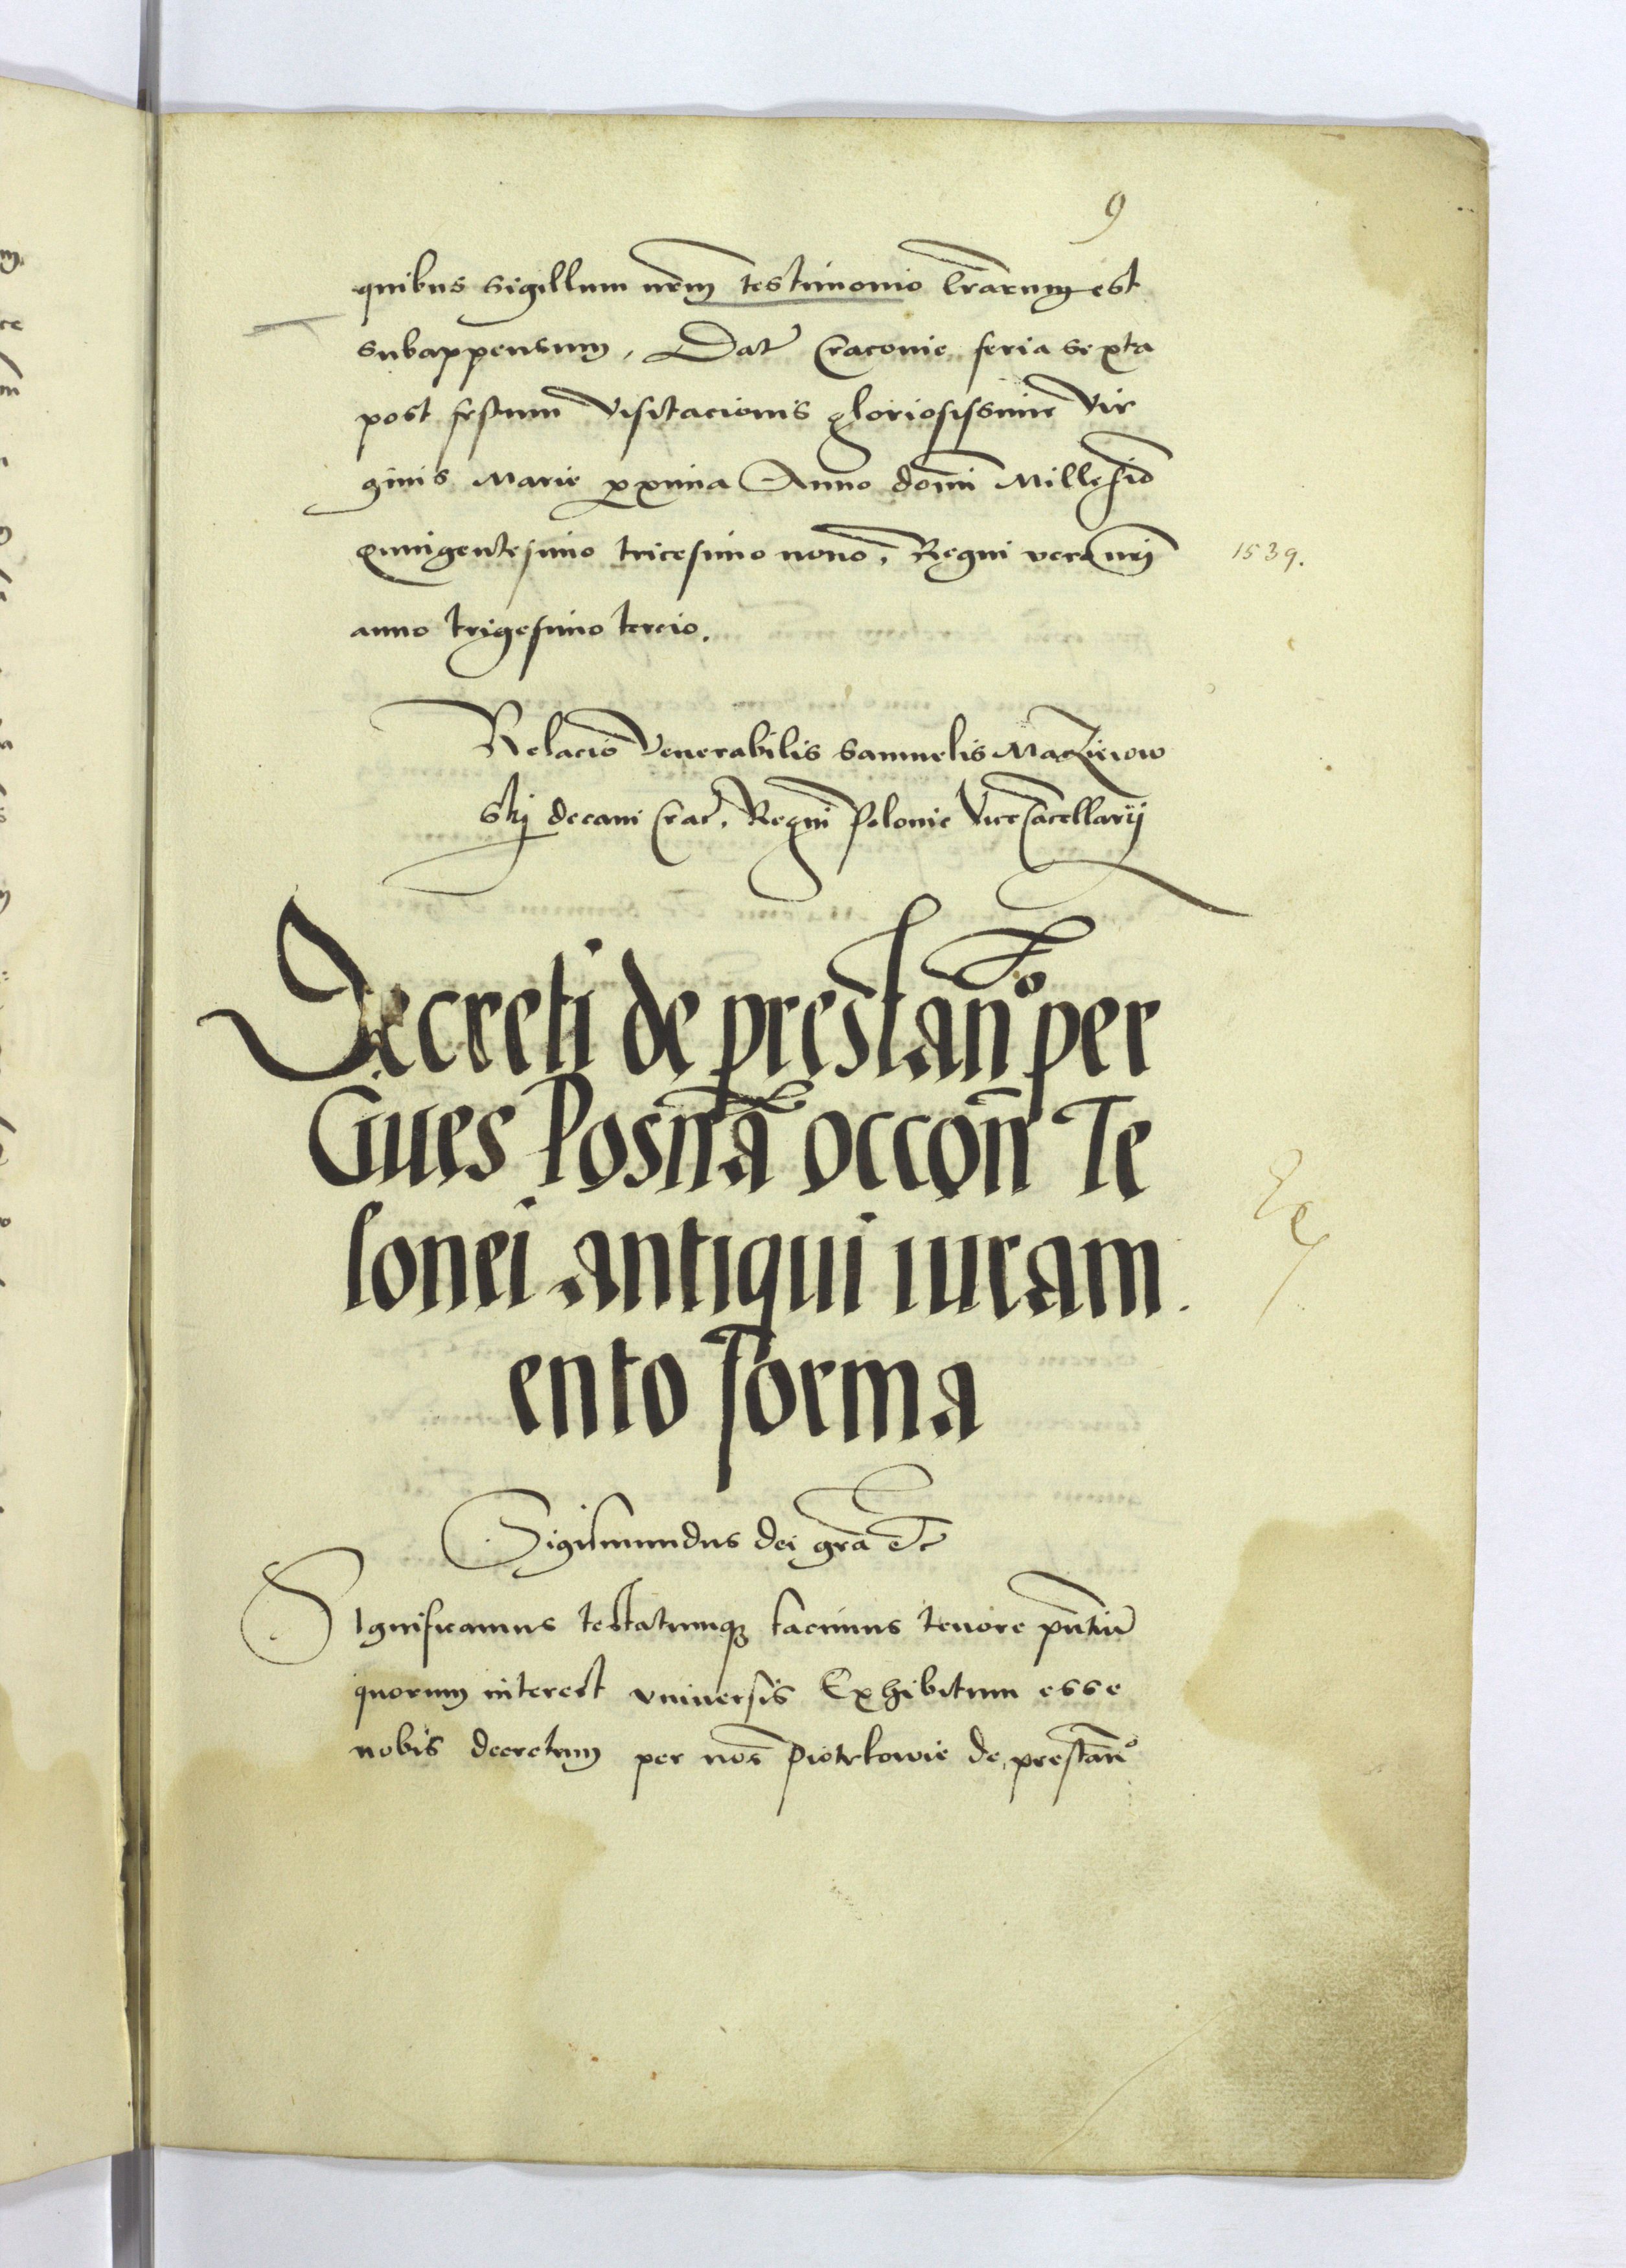 9
quibus sigillum nr̄m testimonio lr̄arum est
subappensum, Dat̄ Cracovie feria sexta
post festum Visitacionis gloriosissime Vir
ginis Marie proxima Anno domi̅ Millesi̅o
quingentesimo tricesimo nono, Regni vero nr̄i
1539.
anno trigesimo tercio.
Relacio Venerabilis Samuelis Macziewow
skj decani Crac̄. Regni Polonie Vicecācellarij
Decreti de prestan̄º per
Ciues Posnā occon̄ Te
lonei antiqui iuram
ento forma
Sigismundus dei gr̄a etc
Significamus testatumq3 facimus tenore pn̄tiū
quorum interest vniuersis Exhibitum esse
nobis decretum per nos Piotrkowie de prestan̄º